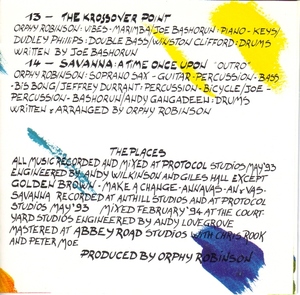 13 - THE KROSSOVER POINT
ORPHY ROBINSON: VIBES - MARIMBA/JOE BASHORUN: PIANO - KEYS/
DUDLEY PHILIPS: DOUBLE BASS/WINSTON CLIFFORD: DRUMS
WRITTEN BY JOE BASHORUN
14 - SAVANNA: A TIME ONCE UPON "OUTRO"
ORPHY ROBINSON: SOPRANO SAX - GUITAR - PERCUSSION - BASS
- BISBONG/JEFFREY DURRANT: PERCUSSION - BICYCLE/JOE -
PERCUSSION - BASHORUN/ANDY GANGADEEN: DRUMS
WRITTEN & ARRANGED BY ORPHY ROBINSON
THE PLACES
ALL MUSIC RECORDED AND MIXED AT PROTOCOL STUDIOS MAY '93
ENGINEERED BY ANDY WILKINSON AND GILES HALL EXCEPT
GOLDEN BROWN - MAKE A CHANGE - ANNAVAS - AN & VAS -
SAVANNA RECORDED AT ANTHILL STUDIOS AND AT PROTOCOL
STUDIOS MAY '93 MIXED FEBRUARY '94 AT THE COURT-
YARD STUDIOS ENGINEERED BY ANDY LOVEGROVE
MASTERED AT ABBEY ROAD STUDIOS WITH CHRIS ROOK
AND PETER MOE
PRODUCED BY ORPHY ROBINSON